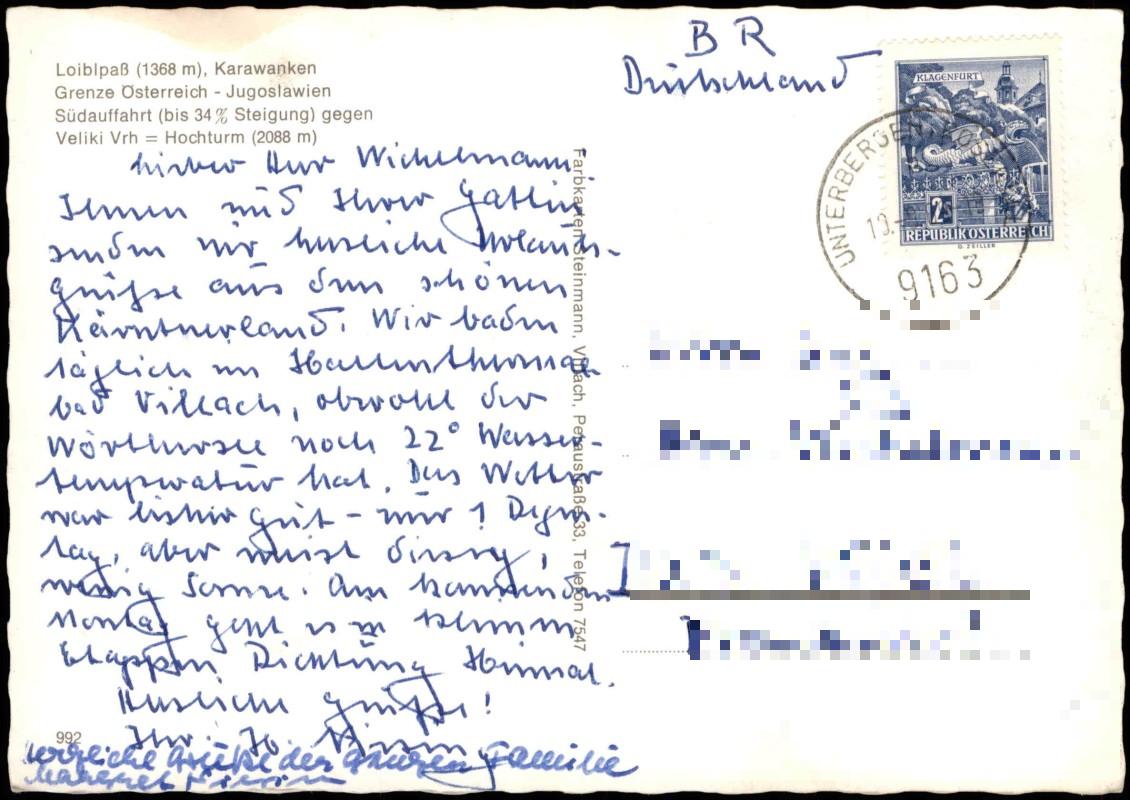 Loiblpaß (1368 m), Karawanken
Grenze Österreich - Jugoslawien
Südauffahrt (bis 34% Steigung) gegen
Veliki Vrh = Hochturm (2088 m)
Lieber Herr Wichelmann,
Ihnen und Ihrer Gattin
senden wir herzliche Urlaubs-
grüße aus dem schönen
Kärntnerland. Wir baden
täglich im Hallenthermal-
bad Villach, obwohl der
Wörthersee noch 22° Wasser-
temperatur hat. Das Wetter
war bisher gut - nur 1 Regen-
tag, aber meist diesig,
wenig Sonne. Am kommenden
Montag geht es in kleinen
Etappen Richtung Heimat.
Herzliche Grüße!
Ihr H.
992
herzliche Grüße der ganzen Familie
Farbkarten Steinmann, Villach, Peraustraße 33, Telefon 7547
BR
Deutschland
KLAGENFURT
2S
REPUBLIK ÖSTERREICH
UNTERBERGEN
10.
9163